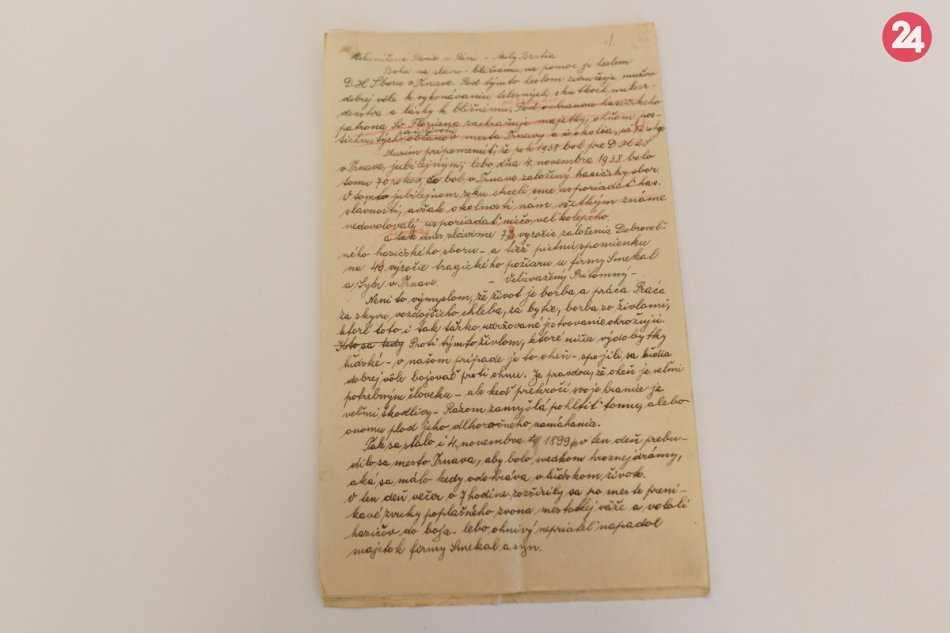 24
1.
Velavážené Dame a Páni - Milý Bratia
Bohu na slávu - bližnému na pomoc je heslom
D.H. Sboru v Trnave. Pod týmto heslom združuje mužov
dobrej vôle k vykonávaniu telesných skutkoch milosr-
denstva a lásky k bližnému. Pod ochranou hasičského
patrona Sv. Floriana zachraňuje majetky, ohňom pos-
tihnutých občanov mesta Trnavy a okolia, už
a i životy
Musím pripomenúť, že rok 1938 bol pre D.H.Z.S
v Trnave, jubilejným, lebo dňa 4. novembra 1938 bolo
tomu 70 rokov, čo bol v Trnave založený hasičský sbor.
V tomto jubilejnom roku chceli sme usporiadať has.
slávnosti, avšak okolnosti nám všetkým známe
nedovolovaly usporiadať niečo veľkolepého.
a tak dnes slávime výročie založenia Dobrovol-
ného hasičského sboru - a tiež pietnú spomienku
na výročie tragického požiaru u firmy Smekal
a Syn v Trnave. - Velavážený Prítomný -
Není to výmyslom, že život je borba a práca. Práca
za skyvu vozdajšieho chleba, za bytie, borba so živlami,
ktoré toto i tak ťažko udržované jestvovanie ohrožujú.
Kto sa tedy Proti týmto živlom, ktoré ničia výdobytky
ľudské - v našom prípade je to oheň - spojili sa ľudia
dobrej vôle bojovať proti ohňu. Je pravdou, že oheň je veľmi
potrebným človeku - ale keď prekročí svoje hranice je
veľmi škodlivý - Razom zamýšľa pohltiť tomu, alebo
onomu plod jeho dlhoročného namáhania.
Tak sa stalo i 4. novembra 1899, v ten deň prebu-
dilo sa mesto Trnava, aby bolo svedkom hroznej drámy,
aká sa málo kedy odohráva v ľudskom živote.
V ten deň večer o 7 hodine rozšírily sa po meste preni-
kavé zvuky poplašného zvona mestskej väže a volali
hasičov do boja - lebo ohnivý nepriateľ napadol
majetok firmy Smekal a syn.